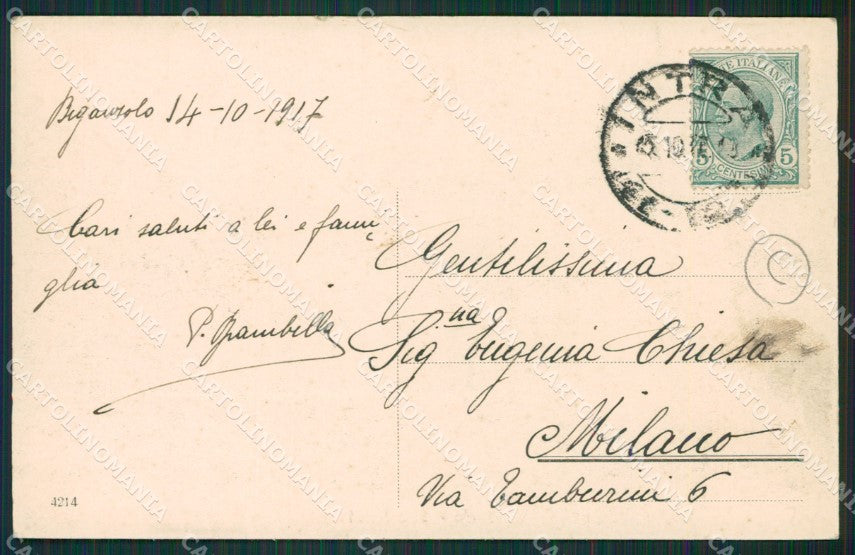 Biganzolo 14-10-1917
Cari saluti a lei e fami-
glia
P. Brambilla
Gentilissima
Sig na Eugenia Chiesa
Milano
Via Tamburini 6
INTRA
POSTE ITALIANE
5 5
CENTESIMI
C
4214
CARTOLINOMANIA